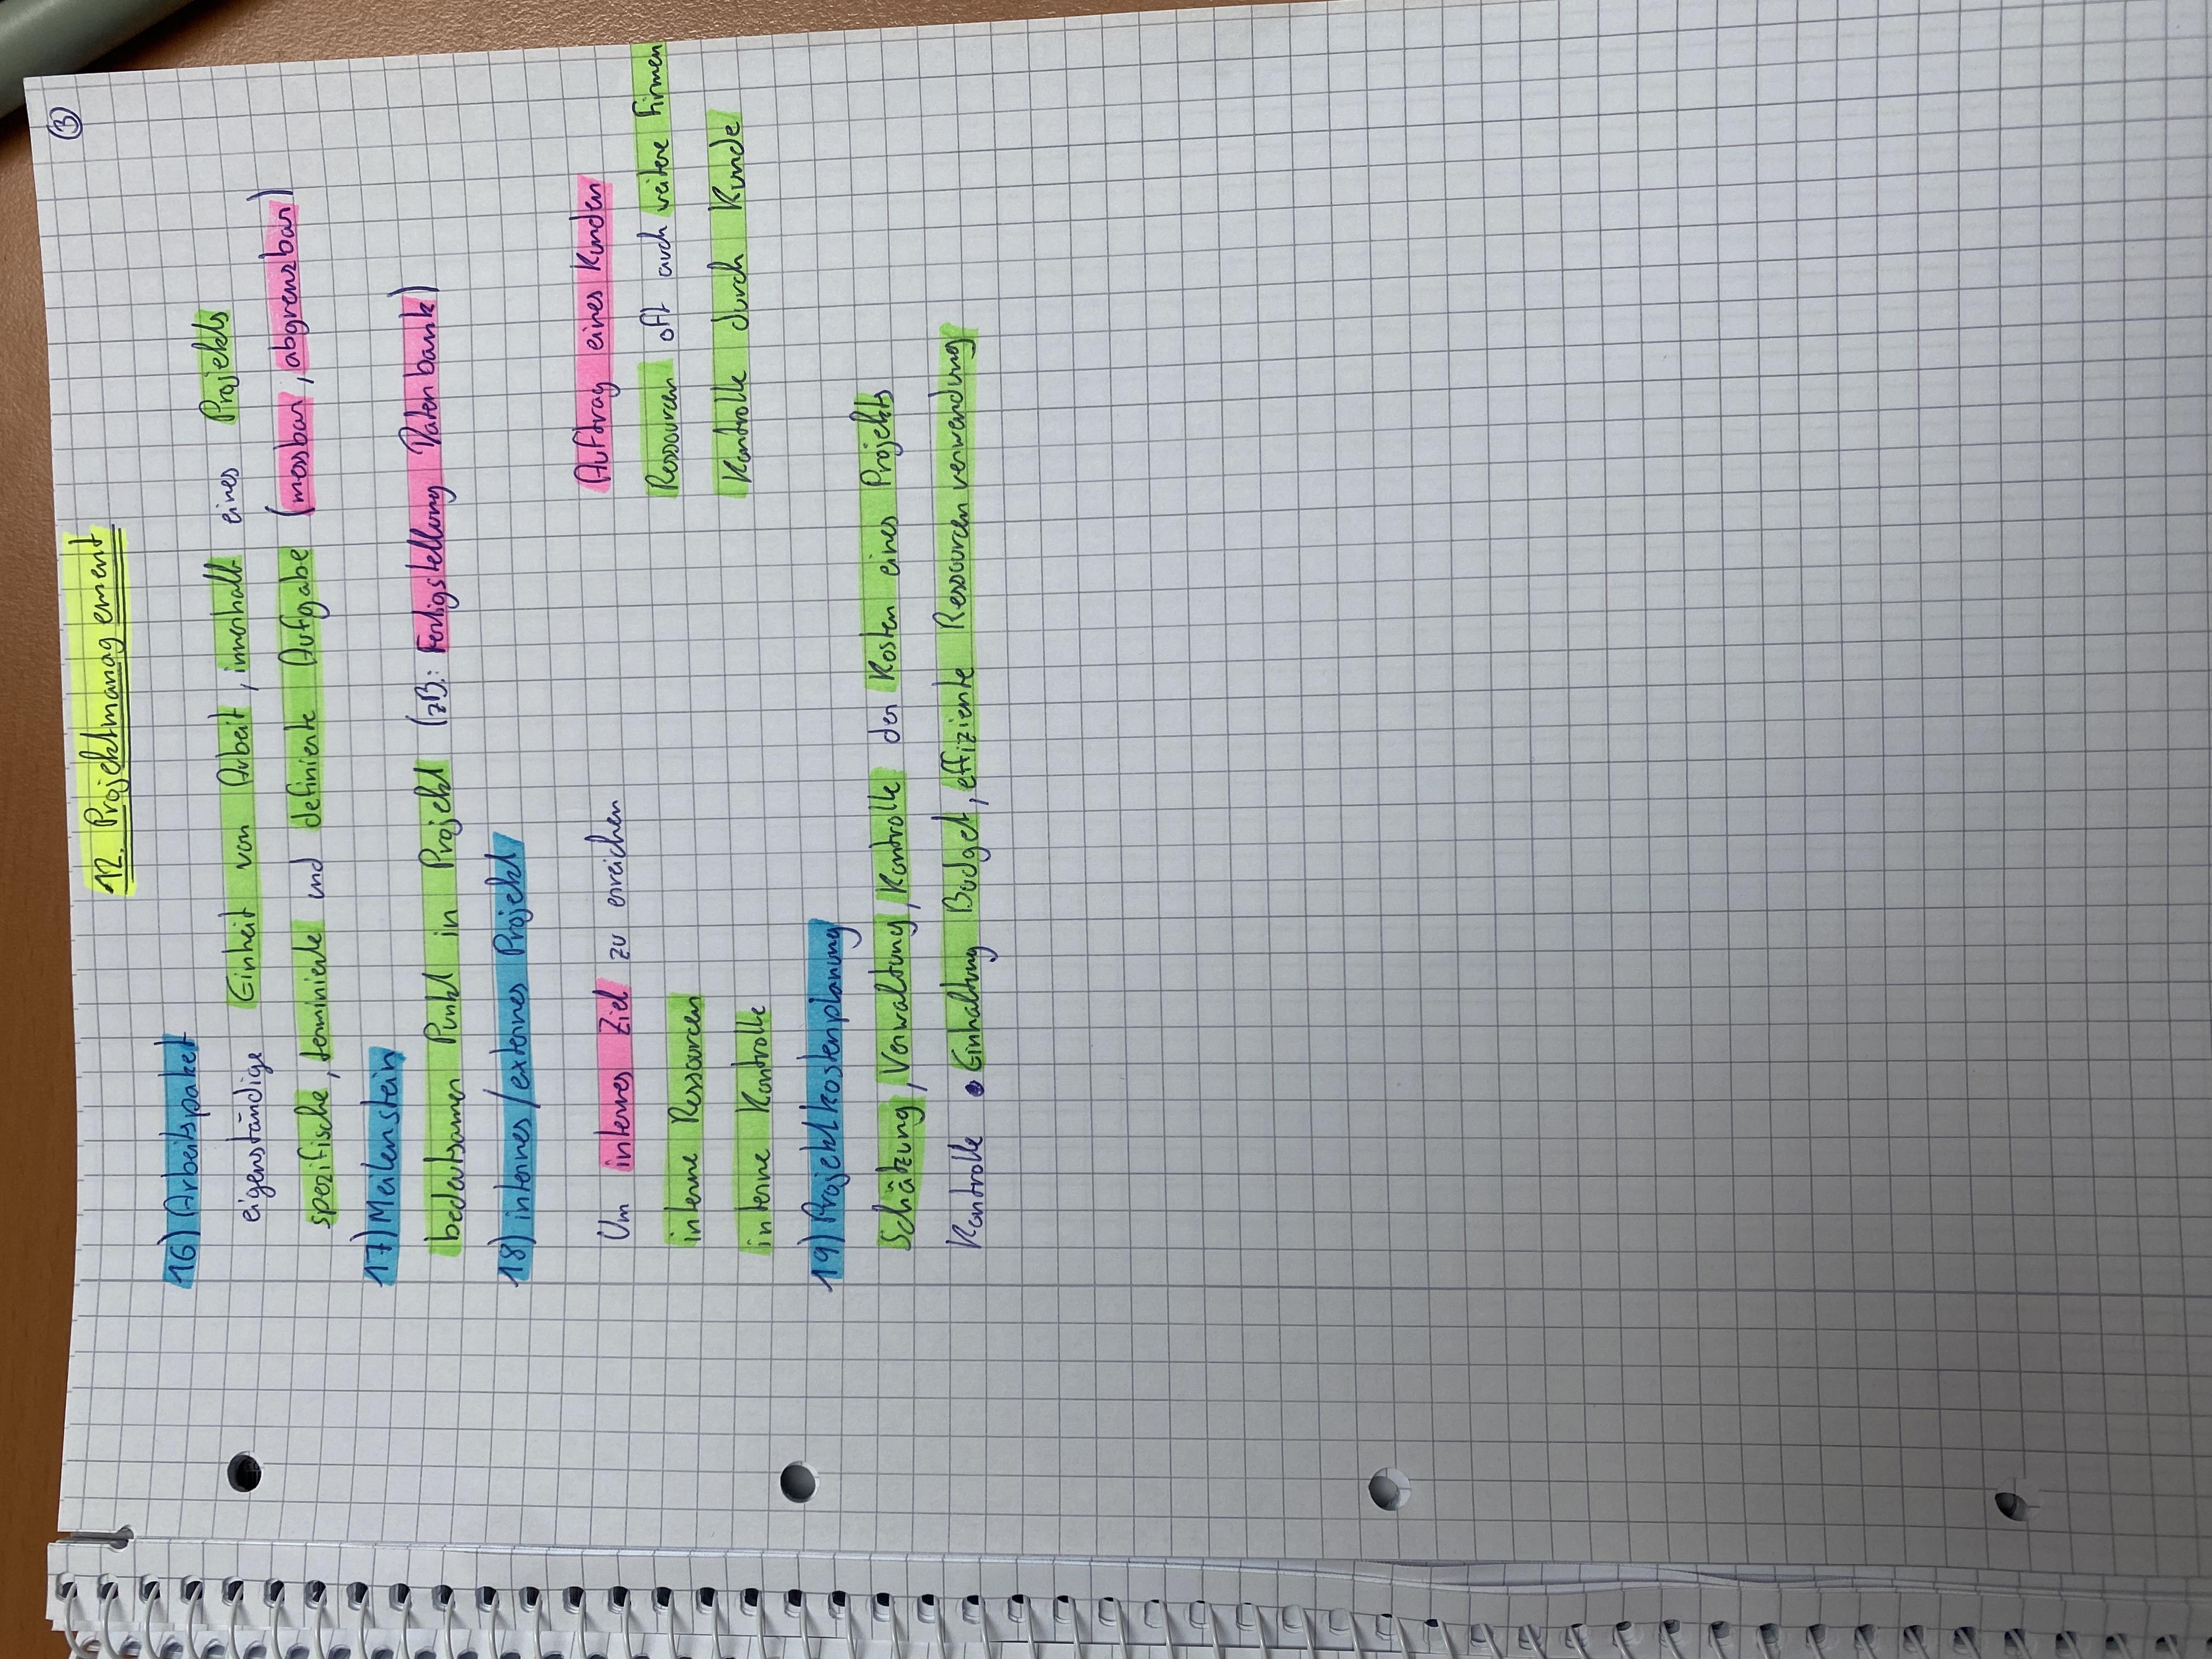 3
12. Projektmanagement
16) Arbeitspaket
eigenständige Einheit von Arbeit, innerhalb eines Projekts
spezifische, terminierte und definierte Aufgabe (messbar, abgrenzbar)
17) Meilenstein
bedeutsamer Punkt in Projekt (zB.: Fertigstellung Datenbank)
18) internes/externes Projekt
Um internes Ziel zu erreichen
interne Ressourcen
interne Kontrolle
Auftrag eines Kunden
Ressourcen oft auch weitere Firmen
Kontrolle durch Kunde
19) Projektkostenplanung
Schätzung, Verwaltung, Kontrolle der Kosten eines Projekts
Kontrolle • Einhaltung Budget, effiziente Ressourcenverwendung